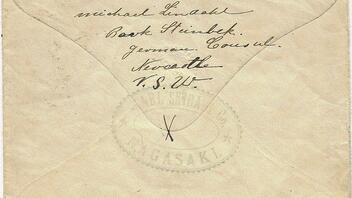 michael Lindahl
Bark Steinbek.
german Consul.
Newcastle
N. S. W.
X
NAGASAKI.